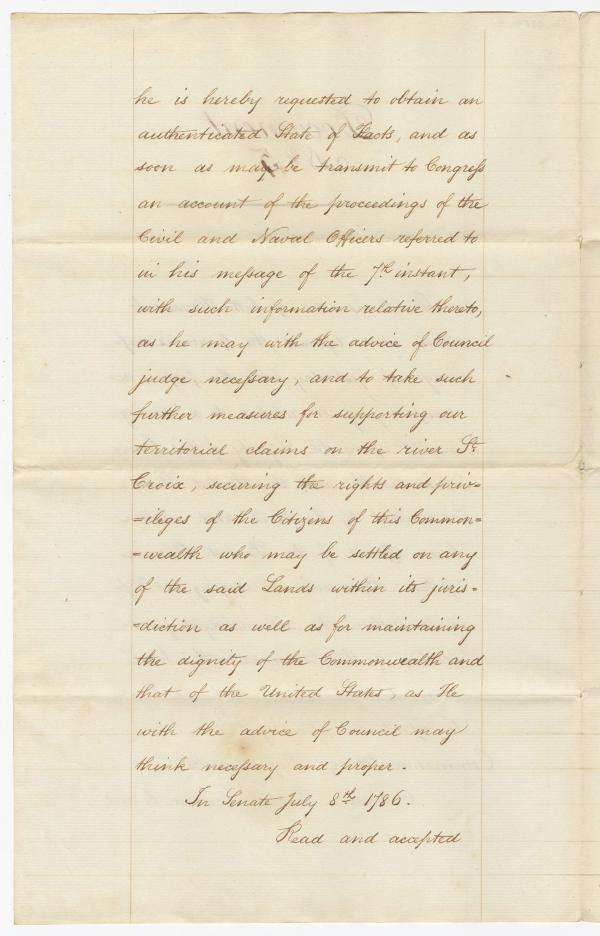 he is hereby requested to obtain an
authenticated State of Facts, and as
soon as may be transmit to Congreſs
an account of the proceedings of the
Civil and Naval Officers referred to
in his meſsage of the 7th instant,
with such information relative thereto,
as he may with the advice of Council
judge neceſsary, and to take such
further measures for supporting our
territorial claims on the river St
Croix, securing the rights and priv=
=ileges of the Citizens of this Common=
=wealth who may be settled on any
of the said Lands within its juris=
=diction as well as for maintaining
the dignity of the Commonwealth and
that of the United States, as He
with the advice of Council may
think neceſsary and proper.
In Senate July 8th 1786.
Read and accepted